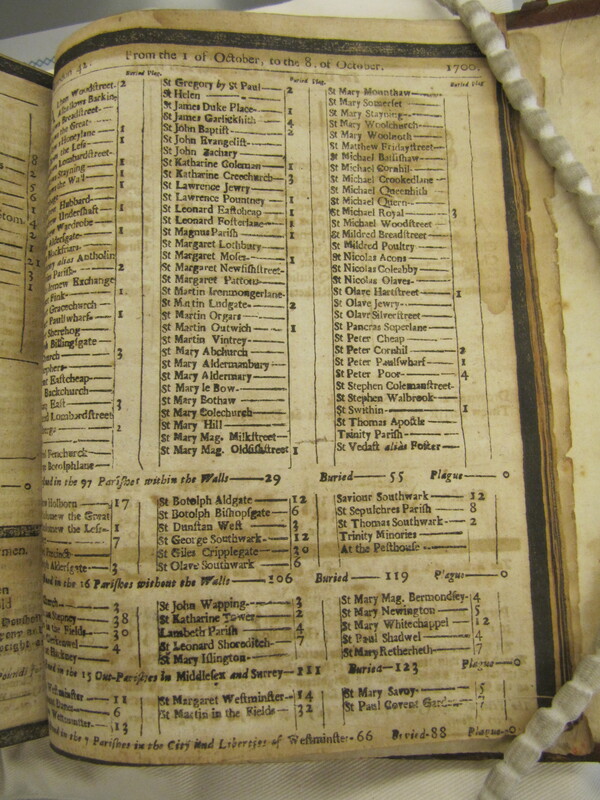 From the 1 of October, to the 8, of October. 1700.
Buried Plag.
Buried Plag.
Buried Plag
Woodstreet- 2
Barkin
Breadstreet-
the Great-
the Less- 1
Honeylane 1
Lombardstreet-
Stayning 1
the Wall 1
Hubbard
Undershaft 1
Wardrobe
Aldersgate 1
Blackfriars
alias Antholin
Parish- 2
Exchange
Fink- 1
Gracechurch
Paulſwharf 1
Sherehog
Billingſgate
church 3
Eaſtcheap
Backchurch
Eaſt 3
Lombardſtreet
2
Fenchurch
Botolphlane
St Gregory by St Paul 2
St Helen
St James Duke Place 1
St James Garlickhith 4
St John Baptiſt 2
St John Evangeliſt
St John Zachary
St Katharine Coleman 1
St Katharine Creechurch 3
St Lawrence Jewry
St Lawrence Pountney 1
St Leonard Eaſtcheap 1
St Leonard Foſterlane 1
St Magnus Pariſh 1
St Margaret Lothbury
St Margaret Moſes 1
St Margaret Newfiſhſtreet-
St Margaret Pattons
St Martin Ironmongerlane-
St Martin Ludgate 2
St Martin Orgars
St Martin Outwich 1
St Martin Vintrey
St Mary Abchurch
St Mary Aldermanbury
St Mary Aldermary
St Mary le Bow
St Mary Bothaw
St Mary Colechurch
St Mary Hill
St Mary Mag. Milkſtreet
St Mary Mag. Oldfiſhſtreet 1
St Mary Mounthaw
St Mary Somerſet
St Mary Stayning
St Mary Woolchurch
St Mary Woolnoth
St Matthew Fridayſtreet
St Michael Baſſiſhaw
St Michael Cornhil
St Michael Crookedlane
St Michael Queenhith
St Michael Quern
St Michael Royal 3
St Michael Woodſtreet
St Mildred Breadſtreet
St Mildred Poultry
St Nicolas Acons
St Nicolas Coleabby
St Nicolas Olaves
St Olave Hartſtreet 1
St Olave Jewry
St Olave Silverſtreet
St Pancras Soperlane
St Peter Cheap
St Peter Cornhil 2
St Peter Paulſwharf 1
St Peter Poor 4
St Stephen Colemanſtreet-
St Stephen Walbrook
St Swithin 1
St Thomas Apoſtle
Trinity Pariſh
St Vedaſt alias Foſter
in the 97 Pariſhes within the Walls 29 Buried 55 Plague 0
Holborn 17
the Great
the Leſs 1
7
Aldersgate 3
St Botolph Aldgate 12
St Botolph Biſhopſgate 6
St Dunſtan Weſt 3
St George Southwark 12
St Giles Cripplegate 30
St Olave Southwark 6
Saviour Southwark 12
St Sepulchres Pariſh 8
St Thomas Southwark 2
Trinity Minories
At the Peſthouse
in the 16 Pariſhes without the Walls 106 Buried 119 Plague 0
3
Stepney 38
in the Fields 30
4
Hackney
St John Wapping 3
St Katharine Tower 2
Lambeth Pariſh 4
St Leonard Shoreditch 7
St Mary Iſlington
St Mary Mag. Bermondſey 4
St Mary Newington 5
St Mary Whitechappel 12
St Paul Shadwel 4
St Mary Retherheth 7
in the 15 Out-Pariſhes in Middleſex and Surrey 111 Buried 123 Plague 0
11
6
Weſtminſter 13
St Margaret Weſtminſter 14
St Martin in the Fields 32
St Mary Savoy
St Paul Covent Garden
in the 7 Pariſhes in the City and Liberties of Weſtminſter 66 Buried 88 Plague 0